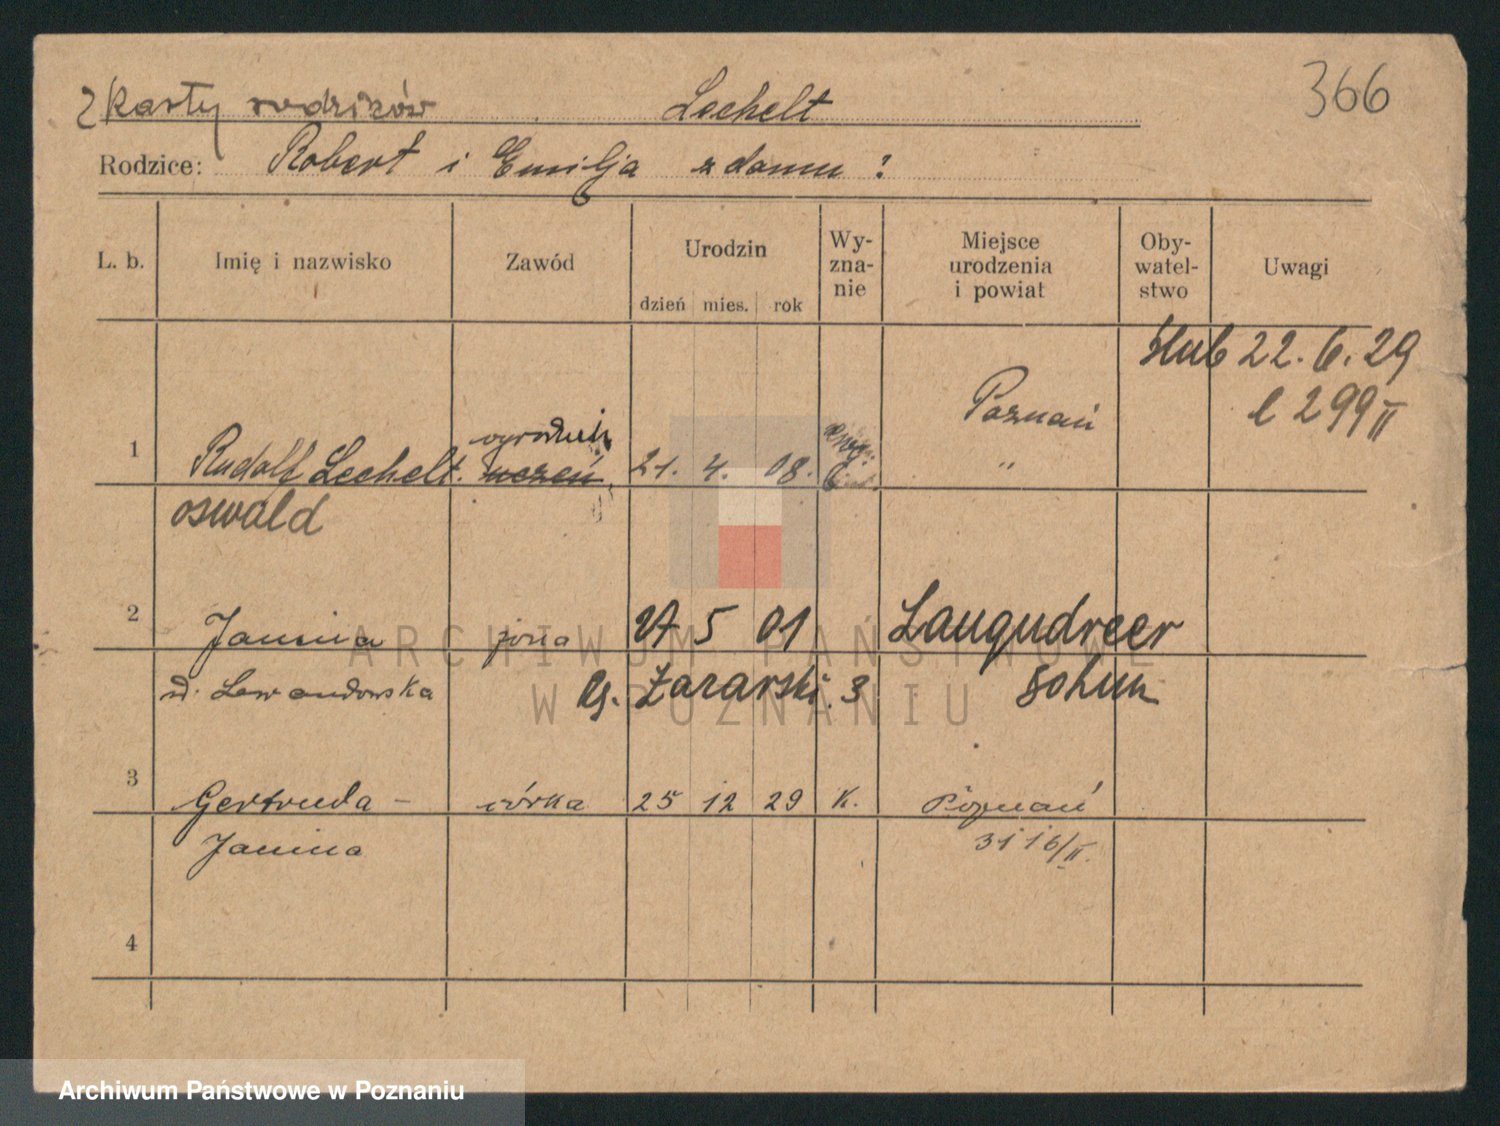 z karty rodziców Lechelt 366
Rodzice: Robert i Emilja z domu ?
L. b. Imię i nazwisko Zawód Urodzin Wy-zna-nie Miejsce urodzenia i powiat Oby-watel-stwo Uwagi
dzień mies. rok
ślub 22. 6. 29
l 299 II
ogrodnik Poznań
1 Rudolf Lechelt. uczeń 21. 4. 08. "
oswald
2 Janina żona 27 5 01 Laugudreer
d. Lewandowska Żararski. 3 Bohum
3 Gertruda - córka 25 12 29 K. Poznań
Janina 3116/II.
4
ARCHIWUM PAŃSTWOWE
W POZNANIU
Archiwum Państwowe w Poznaniu